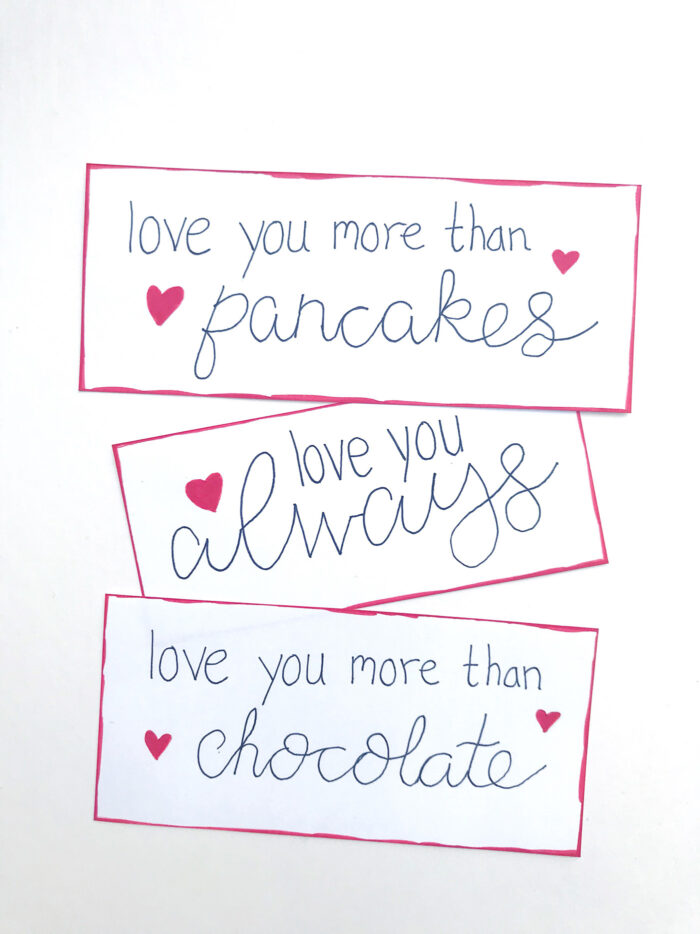 love you more than
pancakes
love you
always
love you more than
chocolate